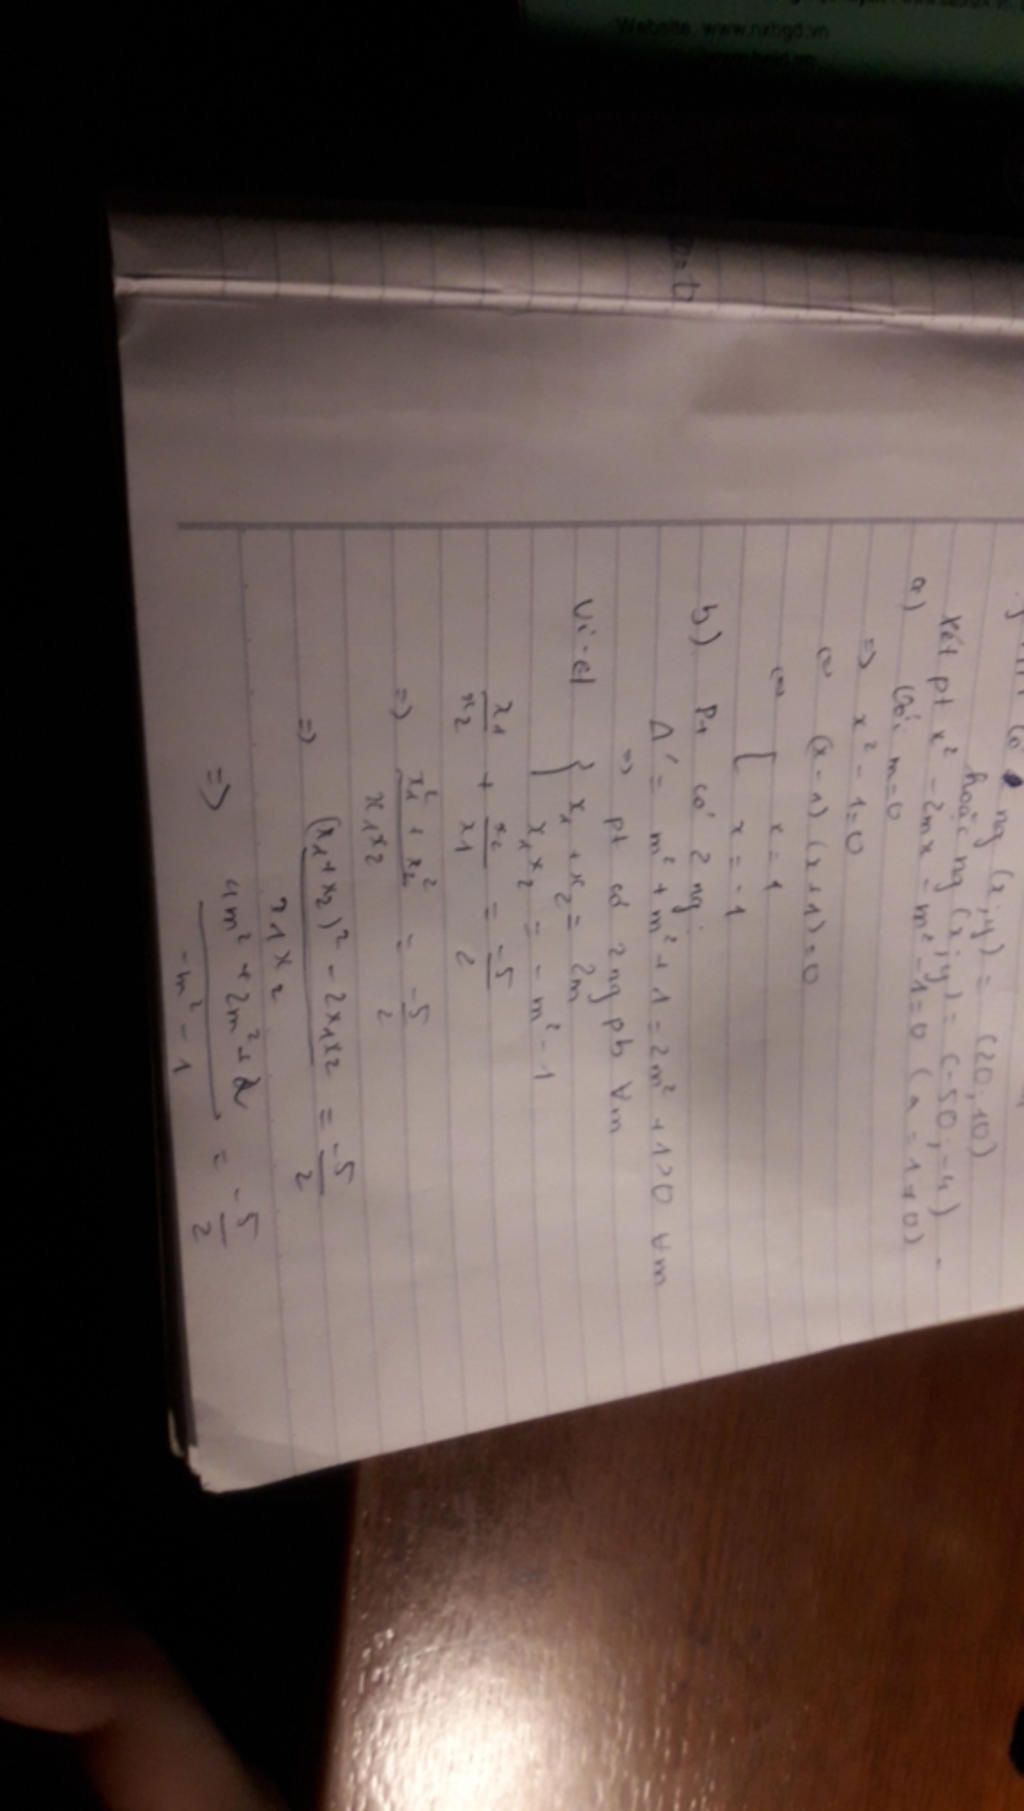 Website: www.nxbgd.vn
ng (x;y) = (20;10)
hoặc ng (x;y) = (-50;-4)
Xét pt x² - 2mx - m² - 1 = 0 (a = 1 ≠ 0)
a) Với m=0
=> x² - 1 = 0
<=> (x-1)(x+1)=0
<=> [ x=1
x=-1
b) Pt có 2 ng.
Δ' = m² + m² + 1 = 2m² + 1 > 0 ∀m
=> pt có 2 ng pb ∀m
Vi-et { x₁ + x₂ = 2m
x₁x₂ = -m² - 1
x₁/x₂ + x₂/x₁ = -5/2
=> (x₁² + x₂²)/(x₁x₂) = -5/2
=> ((x₁+x₂)² - 2x₁x₂)/(x₁x₂) = -5/2
=> (4m² + 2m² + 2)/(-m² - 1) = -5/2